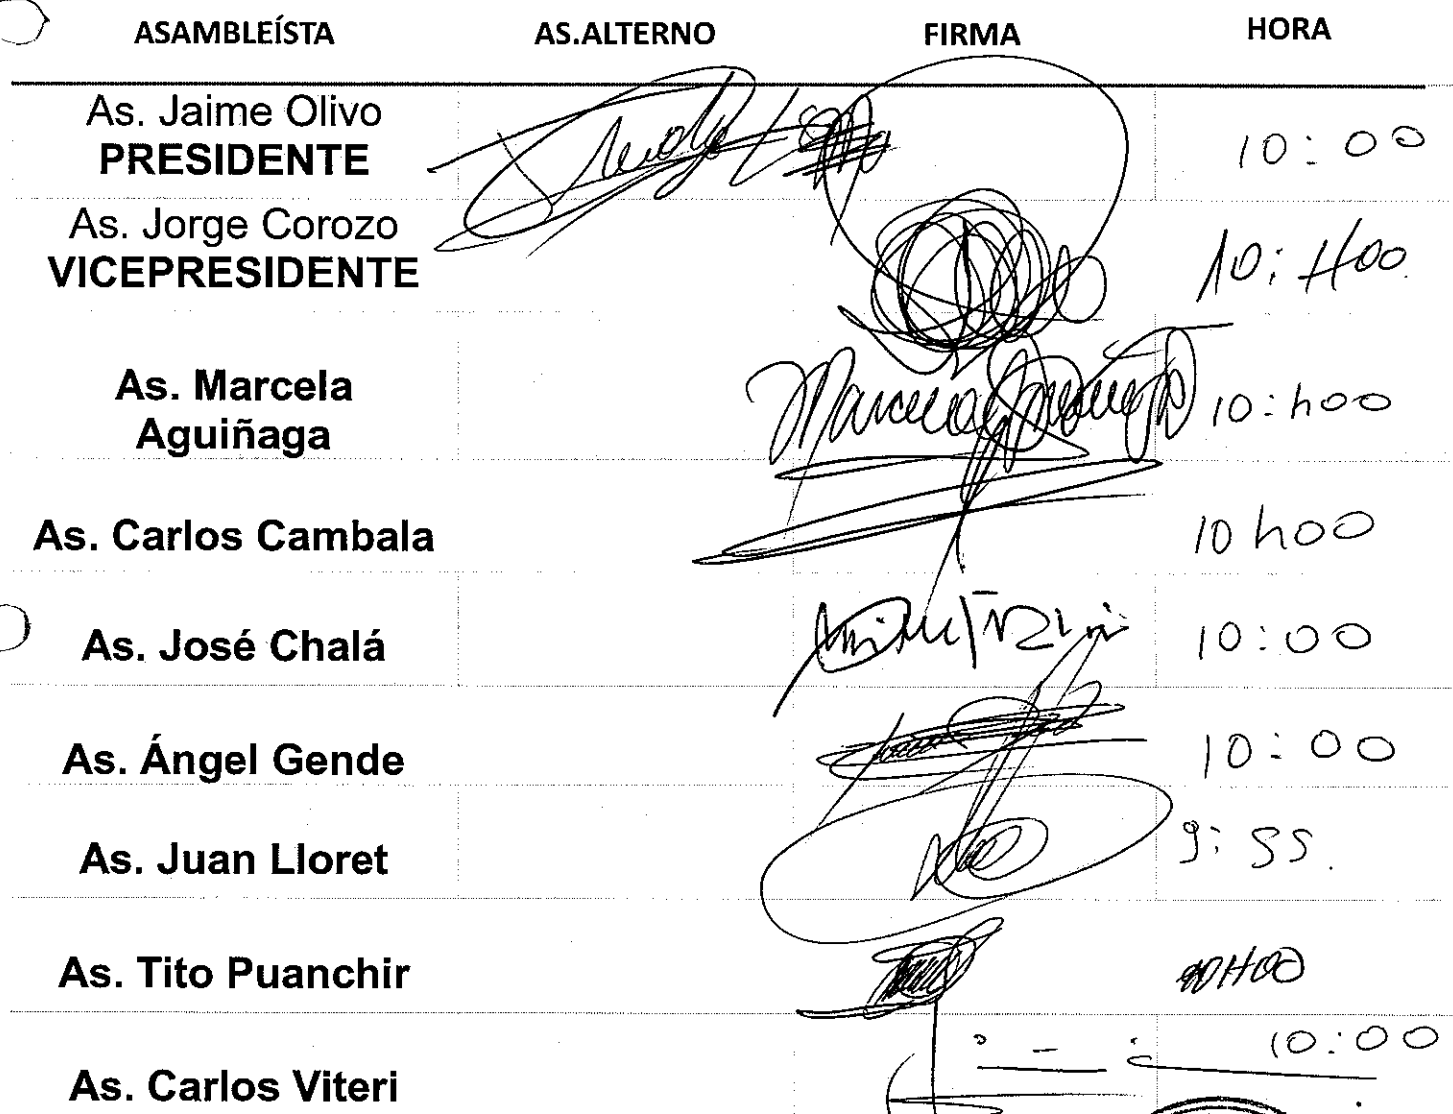 ASAMBLEÍSTA AS.ALTERNO FIRMA HORA
As. Jaime Olivo
PRESIDENTE
10:00
As. Jorge Corozo
VICEPRESIDENTE
10:H00
As. Marcela
Aguiñaga
Marcela Aguiñaga 10:h00
As. Carlos Cambala 10h00
As. José Chalá 10:00
As. Ángel Gende 10:00
As. Juan Lloret 9:55.
As. Tito Puanchir 10H00
As. Carlos Viteri 10:00